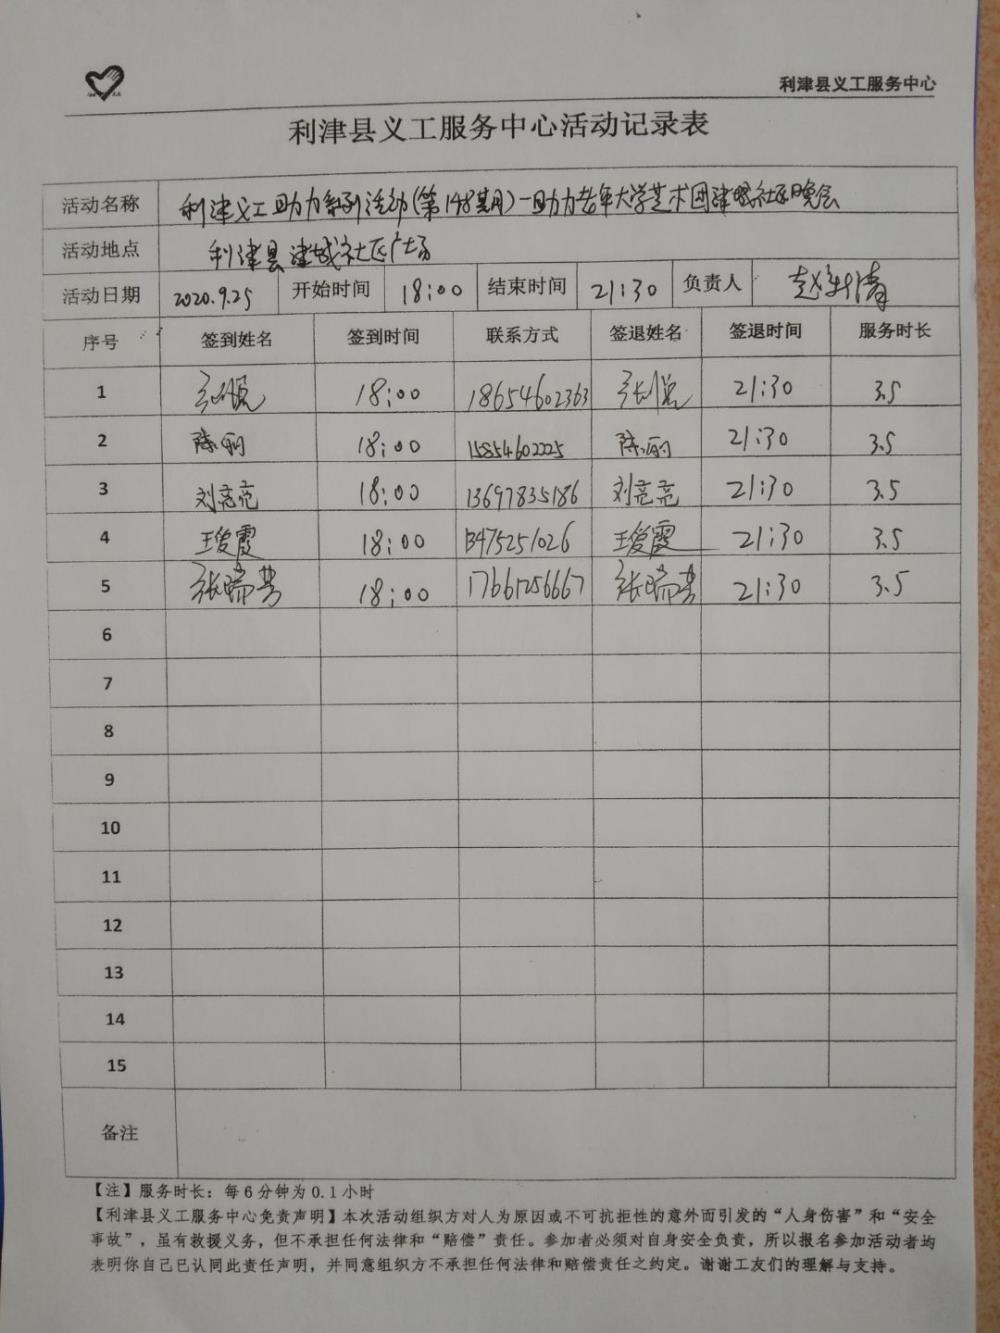 利津县义工服务中心
利津县义工服务中心活动记录表
活动名称 利津义工助力系列活动(第148期)-助力老年大学艺术团津城社区晚会
活动地点 利津县津城社区广场
活动日期 2020.9.25 开始时间 18:00 结束时间 21:30 负责人 赵新清
序号 签到姓名 签到时间 联系方式 签退姓名 签退时间 服务时长
1 18:00 18654602363 21:30 3.5
2 陈丽 18:00 15854602225 陈丽 21:30 3.5
3 刘亮亮 18:00 13697835186 刘亮亮 21:30 3.5
4 王爱霞 18:00 13475251026 王爱霞 21:30 3.5
5 张瑞芳 18:00 17661256667 张瑞芳 21:30 3.5
6
7
8
9
10
11
12
13
14
15
备注
【注】服务时长：每6分钟为0.1小时
【利津县义工服务中心免责声明】本次活动组织方对人为原因或不可抗拒性的意外而引发的“人身伤害”和“安全
事故”，虽有救援义务，但不承担任何法律和“赔偿”责任。参加者必须对自身安全负责，所以报名参加活动者均
表明你自己已认同此责任声明，并同意组织方不承担任何法律和赔偿责任之约定。谢谢工友们的理解与支持。